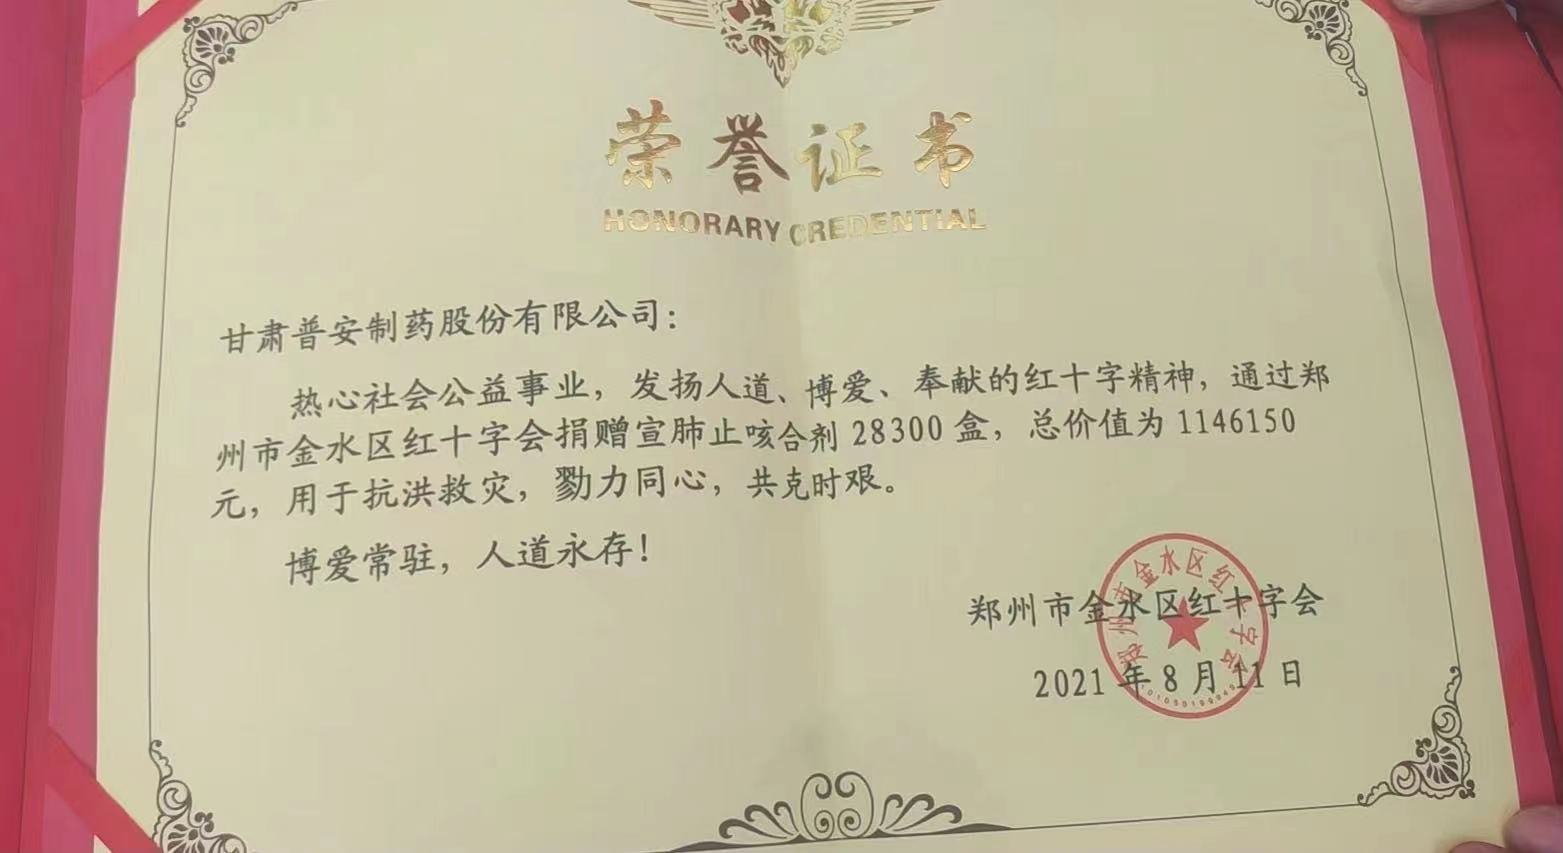 荣誉证书
HONORARY CREDENTIAL
甘肃普安制药股份有限公司：
热心社会公益事业，发扬人道、博爱、奉献的红十字精神，通过郑
州市金水区红十字会捐赠宣肺止咳合剂 28300 盒，总价值为 1146150
元，用于抗洪救灾，勠力同心，共克时艰。
博爱常驻，人道永存！
郑州市金水区红十字会
2021 年 8 月 11 日
郑州市金水区红十字会